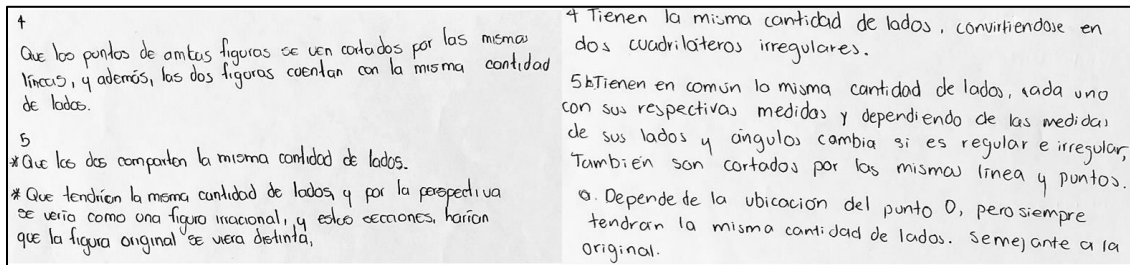 4
Que los puntos de ambas figuras se ven cortados por las mismas
líneas, y además, las dos figuras cuentan con la misma cantidad
de lados.
5
* Que las dos comparten la misma cantidad de lados.
* Que tendrían la misma cantidad de lados, y por la perspectiva
se vería como una figura irracional, y estas secciones, harían
que la figura original se viera distinta,
4 Tienen la misma cantidad de lados, convirtiendose en
dos cuadriláteros irregulares.
5b Tienen en común la misma cantidad de lados, cada uno
con sus respectivas medidas y dependiendo de las medidas
de sus lados y ángulos cambia si es regular e irregular,
También son cortados por las mismas línea y puntos.
a. Depende de la ubicación del punto O, pero siempre
tendrán la misma cantidad de lados. Semejante a la
original.